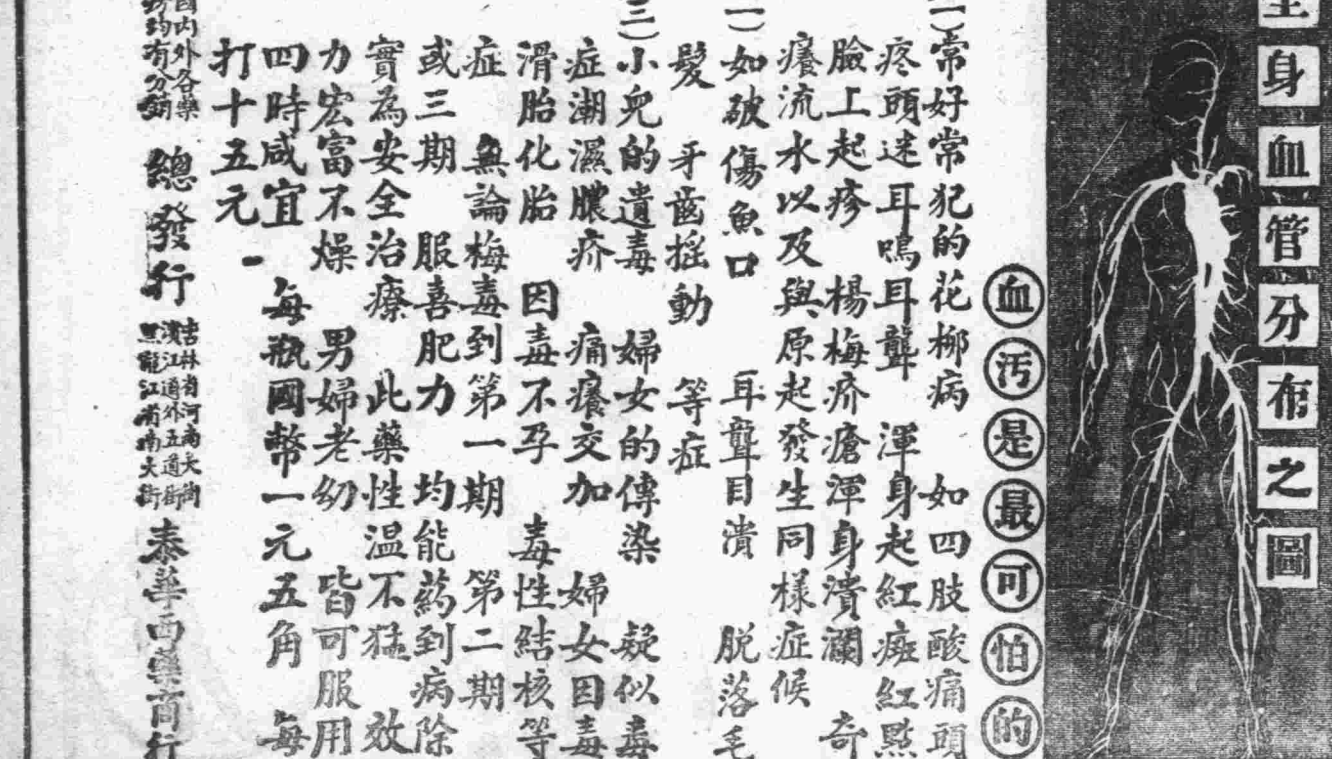 全身血管分布之圖
血汚是最可怕的
一)常好常犯的花柳病　如四肢酸痛頭
疼頭迷耳鳴耳聾　渾身起紅斑紅點
臉上起疹　楊梅疥瘡渾身潰瀾　奇
癢流水以及與原起發生同樣症候
一)如破傷魚口　耳聾目潰　脱落毛
髮　牙齒搖動　等症
三)小兒的遺毒　婦女的傳染　疑似毒
症潮濕膿疥　痛癢交加　婦女因毒
滑胎化胎　因毒不孕　毒性結核等
症　無論梅毒到第一期　第二期
或三期　服喜肥力　均能葯到病除
實為安全治療　此藥性温不猛　效
力宏富不燥　男婦老幼　皆可服用
四時咸宜　每瓶國幣一元五角　每
打十五元
國内外各藥
房均有分銷
總發行
吉林省河南大街
濱江道外五道街
黑龍江省南大街
泰華西藥商行